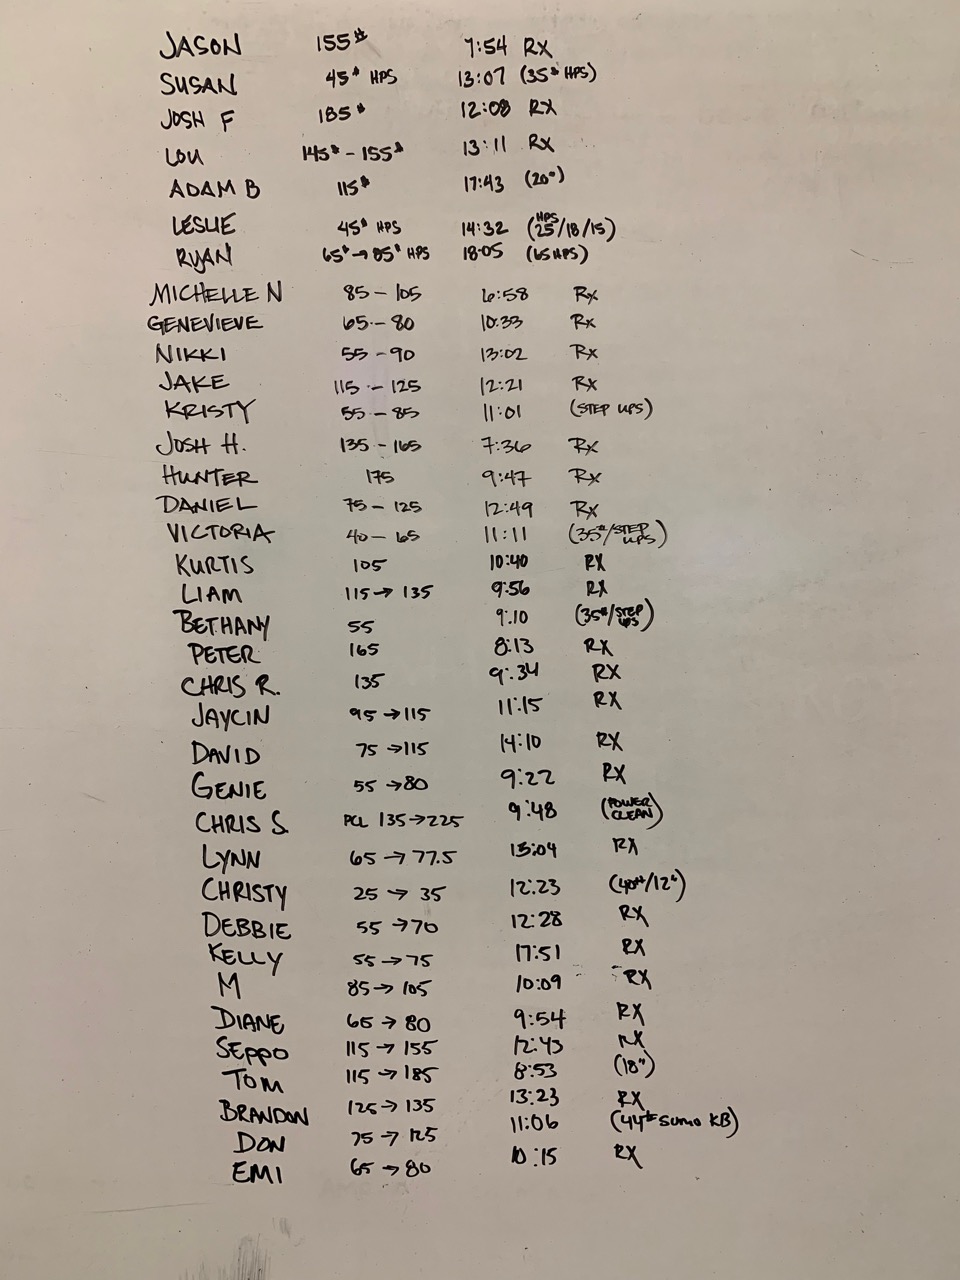 JASON 155# 7:54 RX
SUSAN 45# HPS 13:07 (35# HPS)
JOSH F 185# 12:08 RX
LOU 145# - 155# 13:11 RX
ADAM B 115# 17:43 (20")
LESLIE 45# HPS 14:32 (HPS 25/18/15)
RYAN 65# → 85# HPS 18:05 (65 HPS)
MICHELLE N 85 - 105 6:58 Rx
GENEVIEVE 65 - 80 10:33 Rx
NIKKI 55 - 90 13:02 Rx
JAKE 115 - 125 12:21 Rx
KRISTY 55 - 85 11:01 (STEP UPS)
JOSH H. 135 - 165 7:36 Rx
HUNTER 175 9:47 Rx
DANIEL 75 - 125 12:49 Rx
VICTORIA 40 - 65 11:11 (35#/STEP UPS)
KURTIS 105 10:40 RX
LIAM 115 → 135 9:56 RX
BETHANY 55 9:10 (35#/STEP UPS)
PETER 165 8:13 RX
CHRIS R. 135 9:34 RX
JAYCIN 95 → 115 11:15 RX
DAVID 75 → 115 14:10 RX
GENIE 55 → 80 9:22 RX
CHRIS S. PCL 135 → 225 9:48 (POWER CLEAN)
LYNN 65 → 77.5 13:04 RX
CHRISTY 25 → 35 12:23 (40#/12")
DEBBIE 55 → 70 12:28 RX
KELLY 55 → 75 17:51 RX
M 85 → 105 10:09 RX
DIANE 65 → 80 9:54 RX
SEPPO 115 → 155 12:43 RX
TOM 115 → 185 8:53 (18")
BRANDON 125 → 135 13:23 RX
DON 75 → 125 11:06 (44# SUMO KB)
EMI 65 → 80 10:15 RX